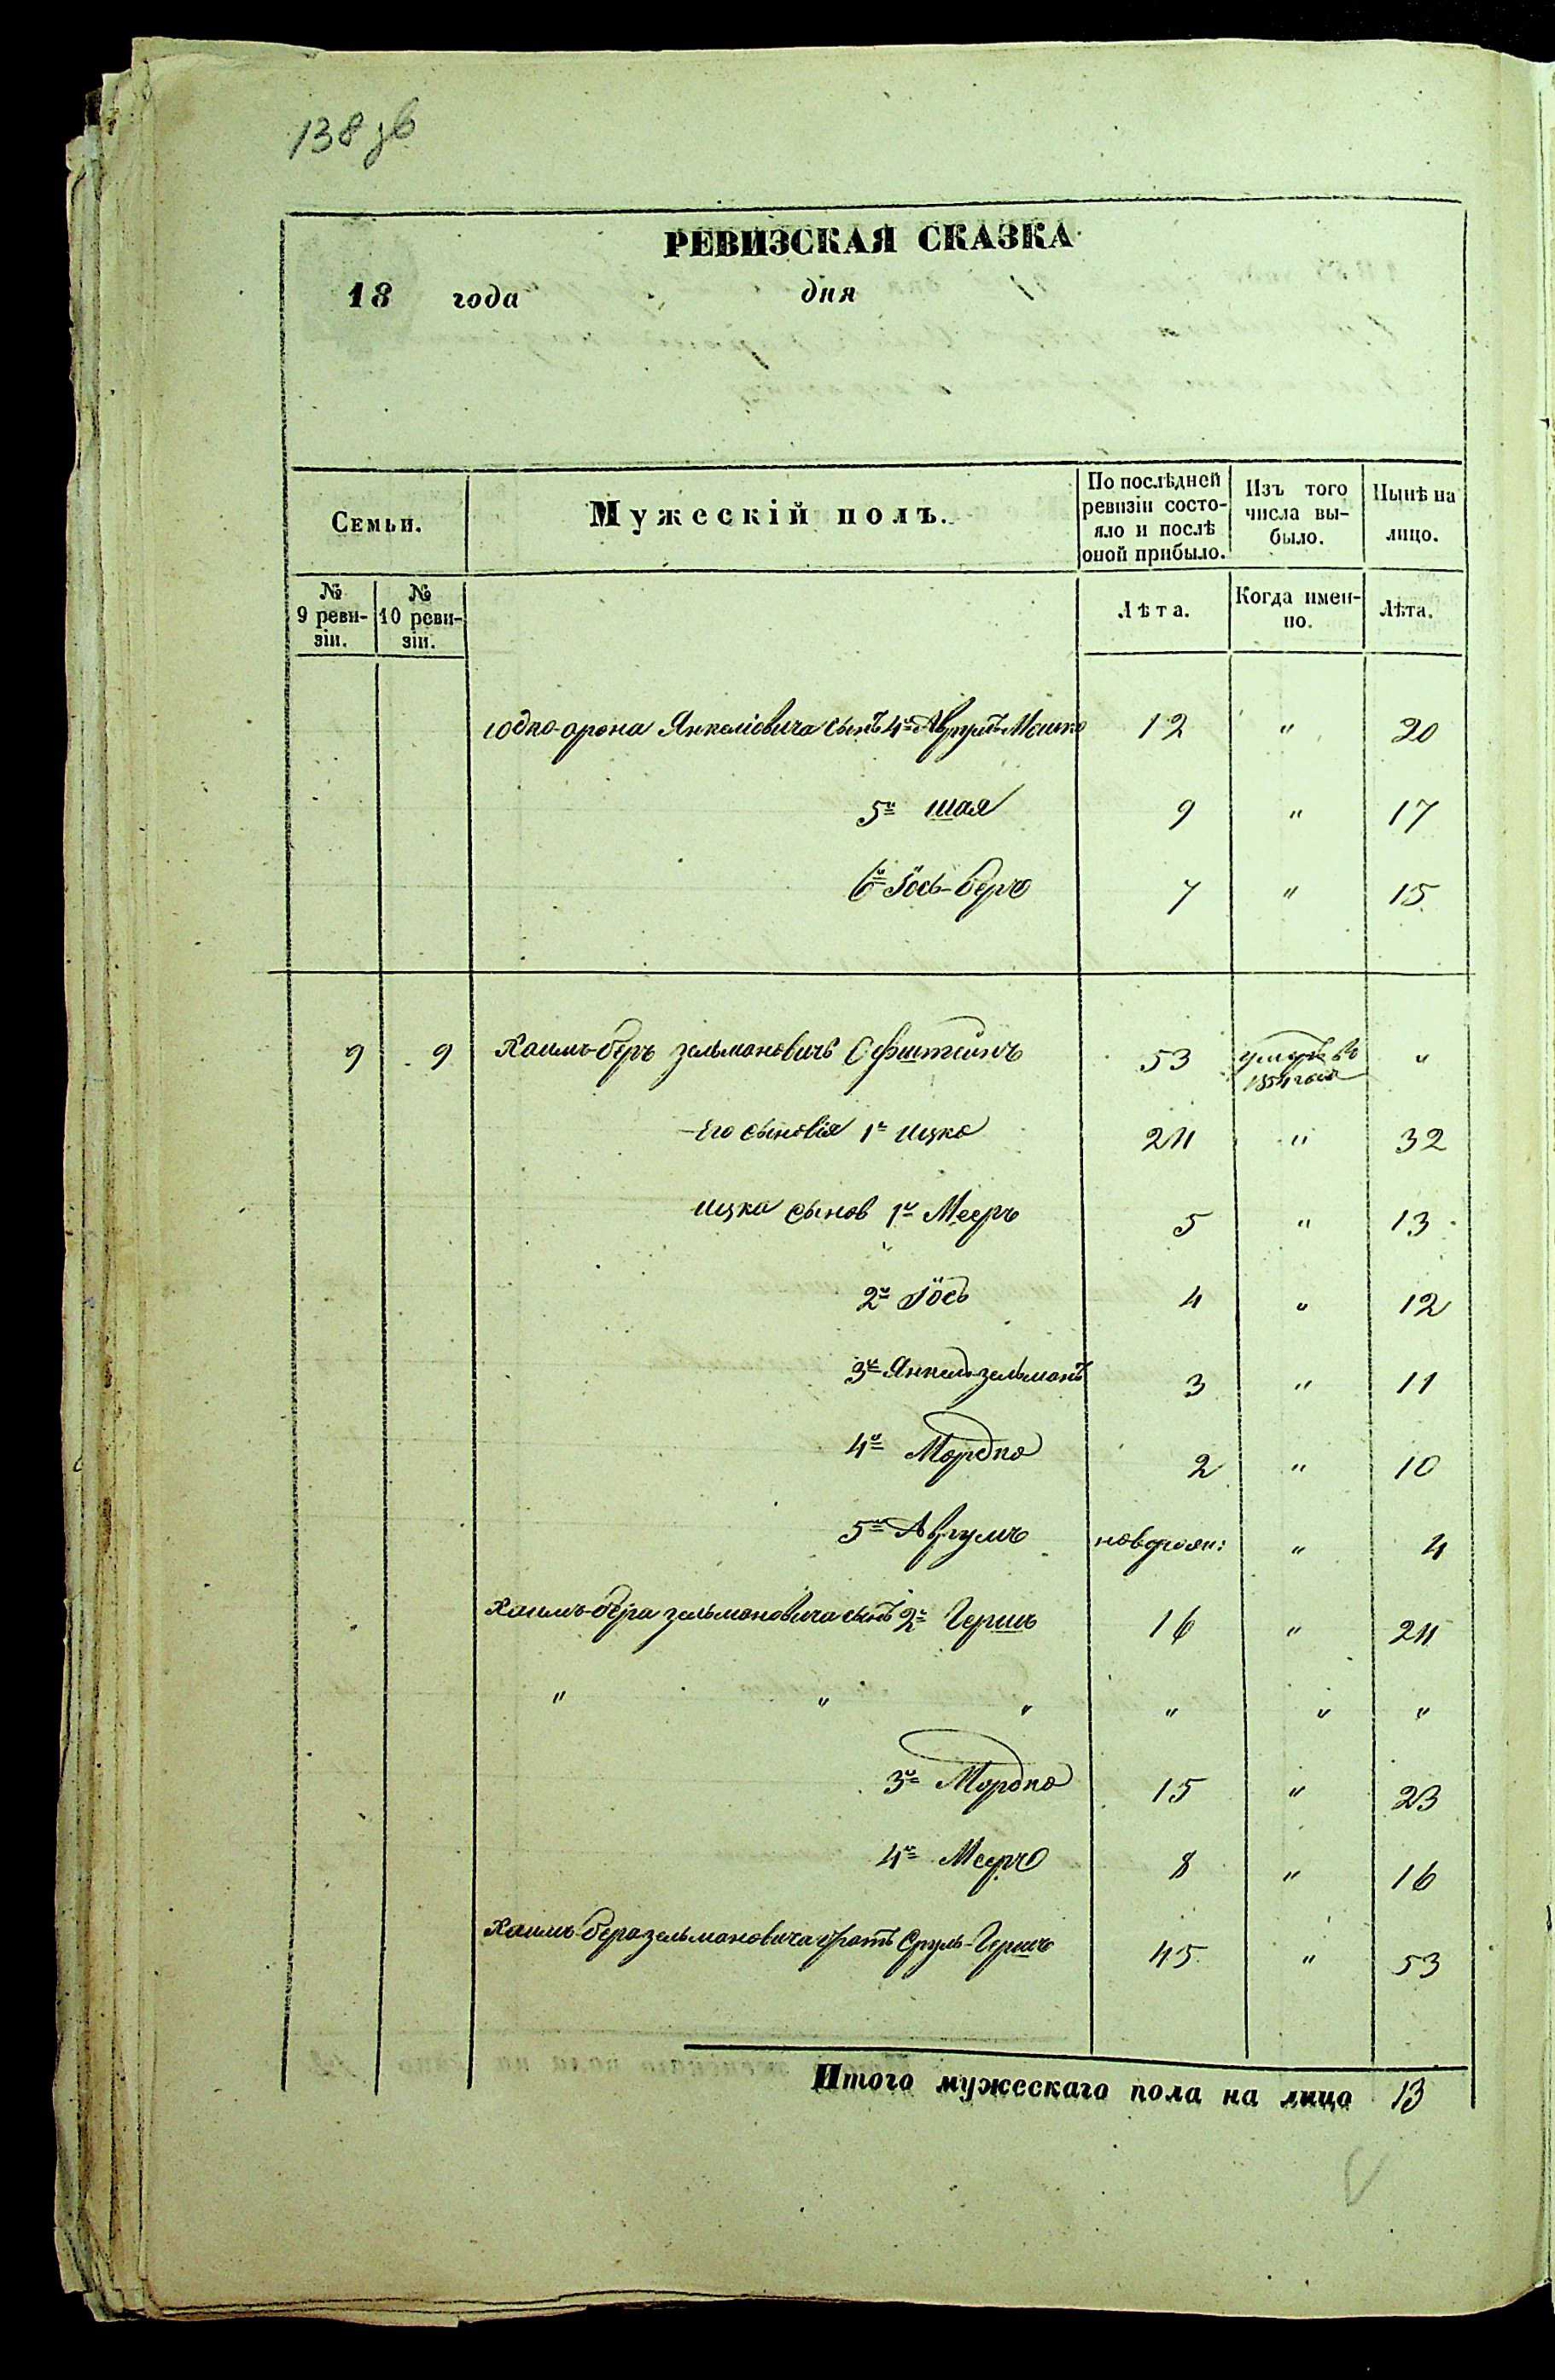 138 зв
РЕВИЗСКАЯ СКАЗКА
18 года дня
Семьи. Мужескій полъ. По послѣдней ревизіи состояло и послѣ оной прибыло. Изъ того числа выбыло. Нынѣ на лицо.
№ 9 ревизіи. № 10 ревизіи. Лѣта. Когда именно. Лѣта.
Юдко-арона Янкеліовича сынъ 4й Аврумъ-Мошко 12 " 20
5й Шая 9 " 17
6й Іось-беръ 7 " 15
9 9 Хаимъ-беръ зельмановичъ 53 умеръ въ 1854 годѣ "
Его сыновія 1й Ицко 24 " 32
Ицка сынов 1й Мееръ 5 " 13
2й Іось 4 " 12
3й Янкель-зельманъ 3 " 11
4й Мордко 2 " 10
5й Аврумъ новорожд: " 4
Хаимъ-бера зельмановича сынъ 2й Гершъ 16 " 24
" " " " " "
3й Мордко 15 " 23
4й Мееръ 8 " 16
Хаимъ-бера зельмановича братъ Сруль-Гершъ 45 " 53
Итого мужескаго пола на лицо 13